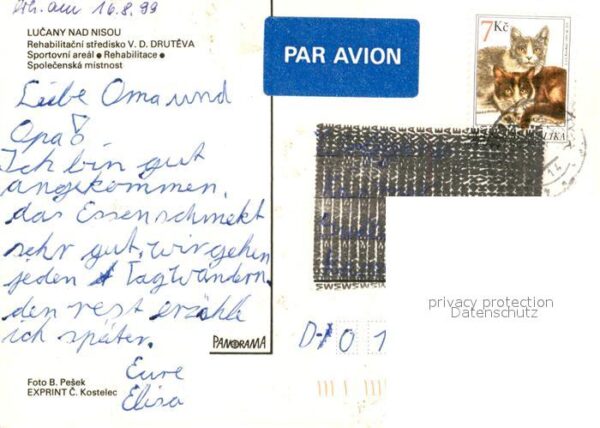 16.8.99
LUČANY NAD NISOU
Rehabilitační středisko V. D. DRUTĚVA
Sportovní areál ● Rehabilitace ●
Společenská místnost
PAR AVION
7Kč
Liebe Oma und
Opa!
Ich bin gut
angekommen,
das Essen schmekt
sehr gut, wir gehen
jeden Tag Wandern.
den rest erzähle
ich später.
Eure
Elisa
PANORAMA
Foto B. Pešek
EXPRINT Č. Kostelec
D-01
privacy protection
Datenschutz